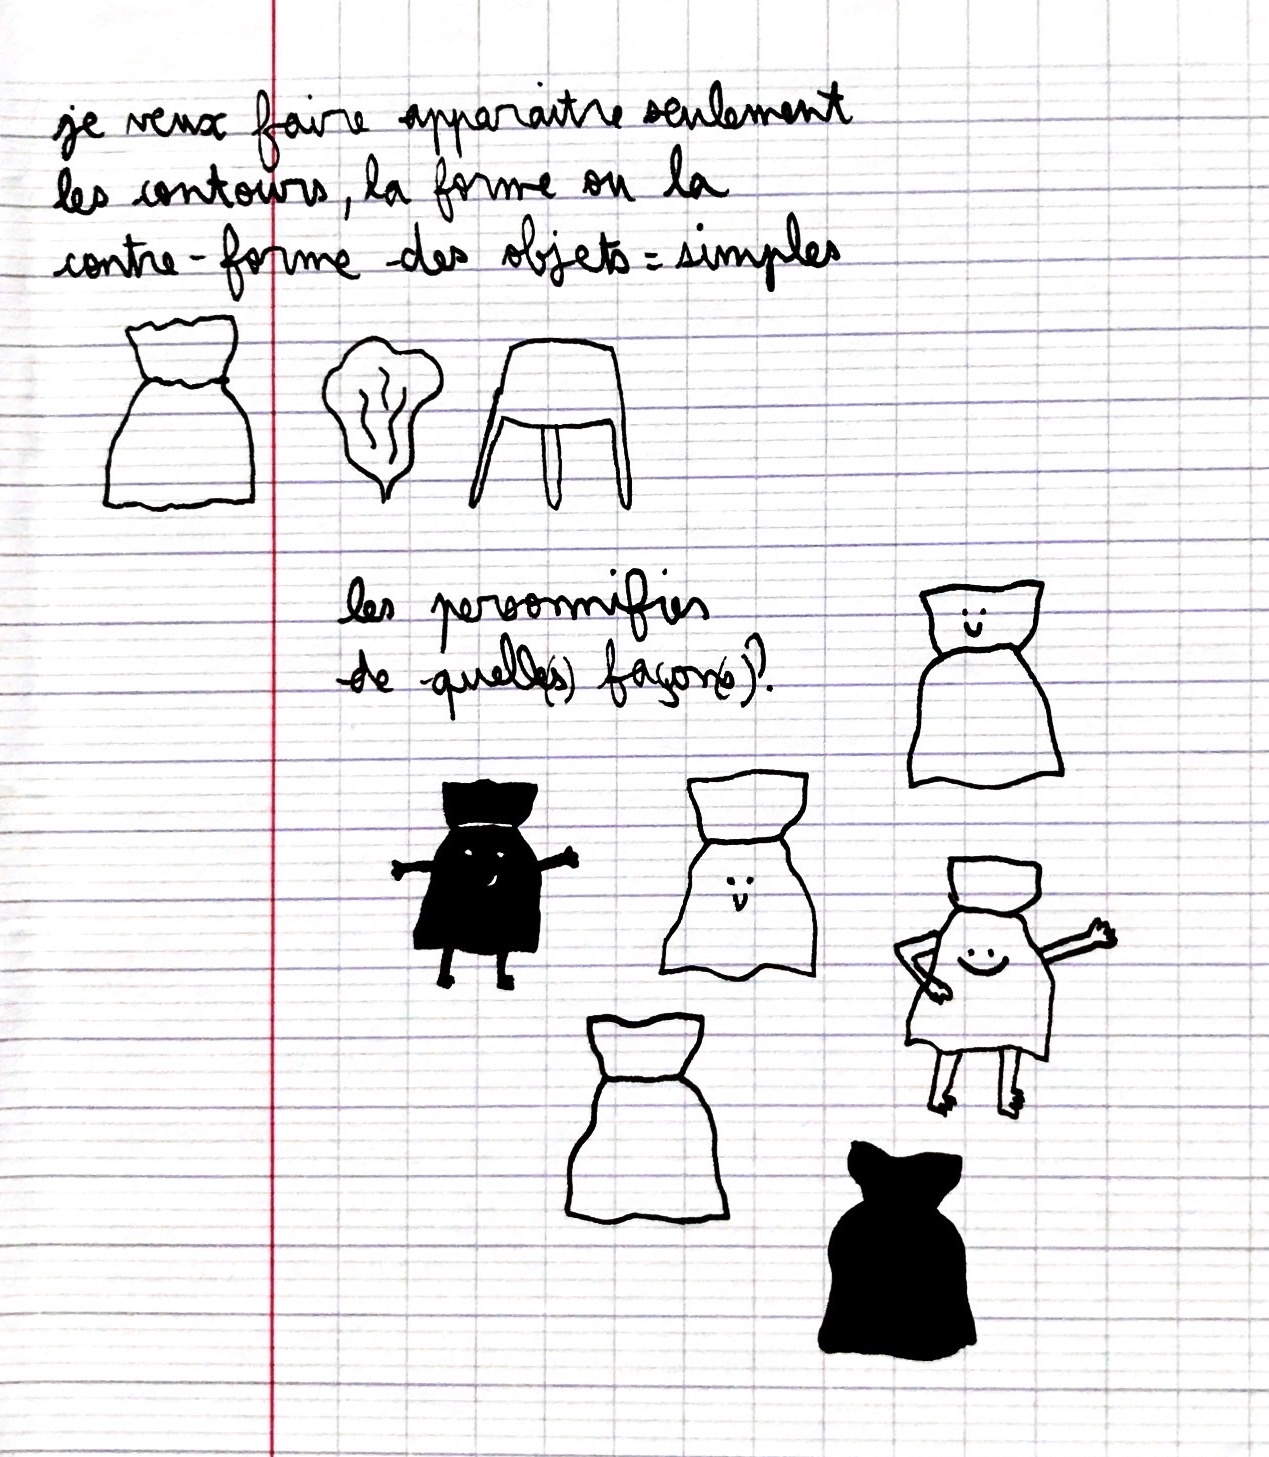 je veux faire apparaitre seulement
les contours, la forme ou la
contre-forme des objets = simples
les personnifies
de quelle(s) façon(s)?